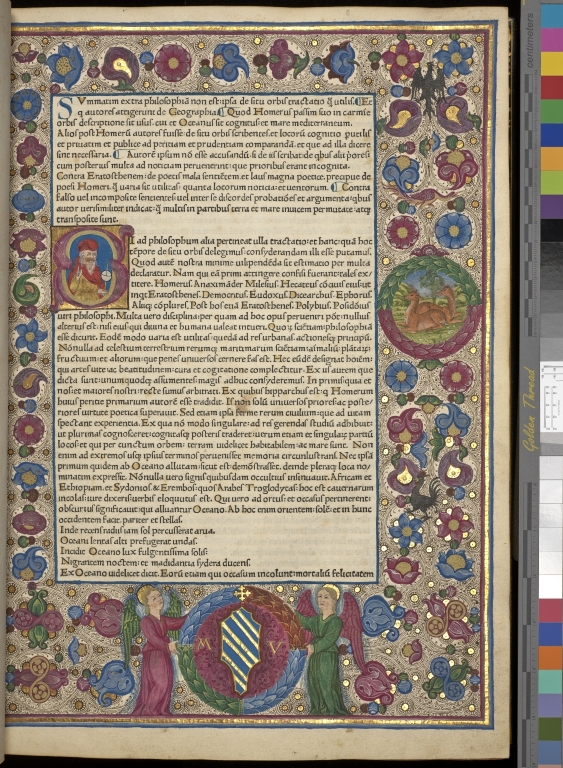 SVmmatim extra philosophiā non est: ipsa de situ orbis tractatio: & q̄ utilis. ¶ Et
q autores attigerunt de Geographia ¶ Quod Homerus passim suo in carmīe
orbis descriptione sit usus. cui et Oceanus sit cognitus: et mare mediterraneum.
Alios post Homerū autores fuisse: de situ orbis scribentes. et locorū cognitio putilis
et priuatim et publice ad peritiam et prudentiam comparandā. et que ad illā dicere
sint necessaria. ¶ Autorē ipsum nō eē accusandū: si de eis scribat: de qbus alii
cum posterius multa ad noticiam peruenerint: que prioribus erant incognita.
Contra Eratosthenem: de poetis mala sentiētem: et laus magna poetice. precipue de
poesi Homeri. & uaria sit utilitas: quanta locorum noticia: et uentorum. ¶ Contra
falso uel incomposite sentientes: uel inter se discordes probatiōes: et argumenta: qbus
autor uerisimiliter indicat: q̄ multis in partibus terra et mare inuicem permutate: atqz
transposite sunt.
SI ad philosophum alia pertineat ulla tractatio: et hanc: quā hoc
tēpore de situ orbis delegimus: consyderandam illi esse putamus.
Quod autē nostra minime uilipendēda sit estimatio per multa
declaratur. Nam qui eā primi attingere confisi fuerant: tales extitere.
Homerus. Anaximāder Milesius. Hecateus cōciuis eius: ut
inqt Eratosthenes. Democritus. Eudoxus. Dicearchus. Ephorus.
Aliiqz cōplures. Post hos etiā Eratosthenes. Polybius. Posidōius
uiri philosophi. Multa uero disciplina: per quam ad hoc opus perueniri pōt: nullius
alterius est: nisi eius: qui diuina et humana ualeat intueri.
esse dicunt. Eodē modo uaria est utilitas: quedā ad res urbanas: actiones: principū.
Nonulla ad celestium
fructuum: et aliorum: que penes uniuersos cernere fas est. Hec eūdē designat hoiēm:
qui artes uite: ac beatitudinem: cura et cogitatione complectitur. Ex iis autem que
dicta sunt: unumquodqz assumentes: magis adhuc consyderemus. In primis: quia et
nos: et maiores nostri: recte sumus arbitrati. Ex quibus hipparchus est: q Homerum
huius peritie primarium autorē esse tradidit. Is non solū uniuersos priores: ac posteriores
uirtute poetica superauit. Sed etiam ipsa ferme rerum ciuilium: que ad uitam
spectant experientia. Ex qua nō modo singulare: ad res gerendas studiū adhibuit:
ut plurima cognosceret: cognitaqz posteris traderet: uerum etiam et singulaz partiū
locos: et qui per cunctum orbem: terram uidelicet habitabilem: ac mare sunt. Non
enim ad extremos usqz ipsius terminos peruenisset memoria circumlustrans. Nec ipsā
primum quidem ab Oceano allutam: sicut est: demōstrasset. deinde pleraqz loca nominatim
expressisse. Nōnulla uero signis quibusdam occultius insinuauit. Africam et
Ethiopiam. et Sydonios & Erembos: quos Arabes Troglodytas: hoc est cauernarum
incolas: uire dixeris: uerbis eloquutus est. Qui uero ad ortus: et occasus pertinerent:
obscurius significauit: qui alluantur Oceano. Ab hoc enim orientem: solē: et in hunc
occidentem facit. pariter et stellas.
Inde recens radiis iam sol percusserat arua.
Oceani lentas alti prefugerat undas.
Incidit Oceano lux fulgentissima solis:
Nigrantem noctem: et madidantia sydera ducens.
Ex Oceano uidelicet dicit. Eorū etiam qui occasum incolunt: mortaliū felicitatem
M V
centimeters
Golden Thread